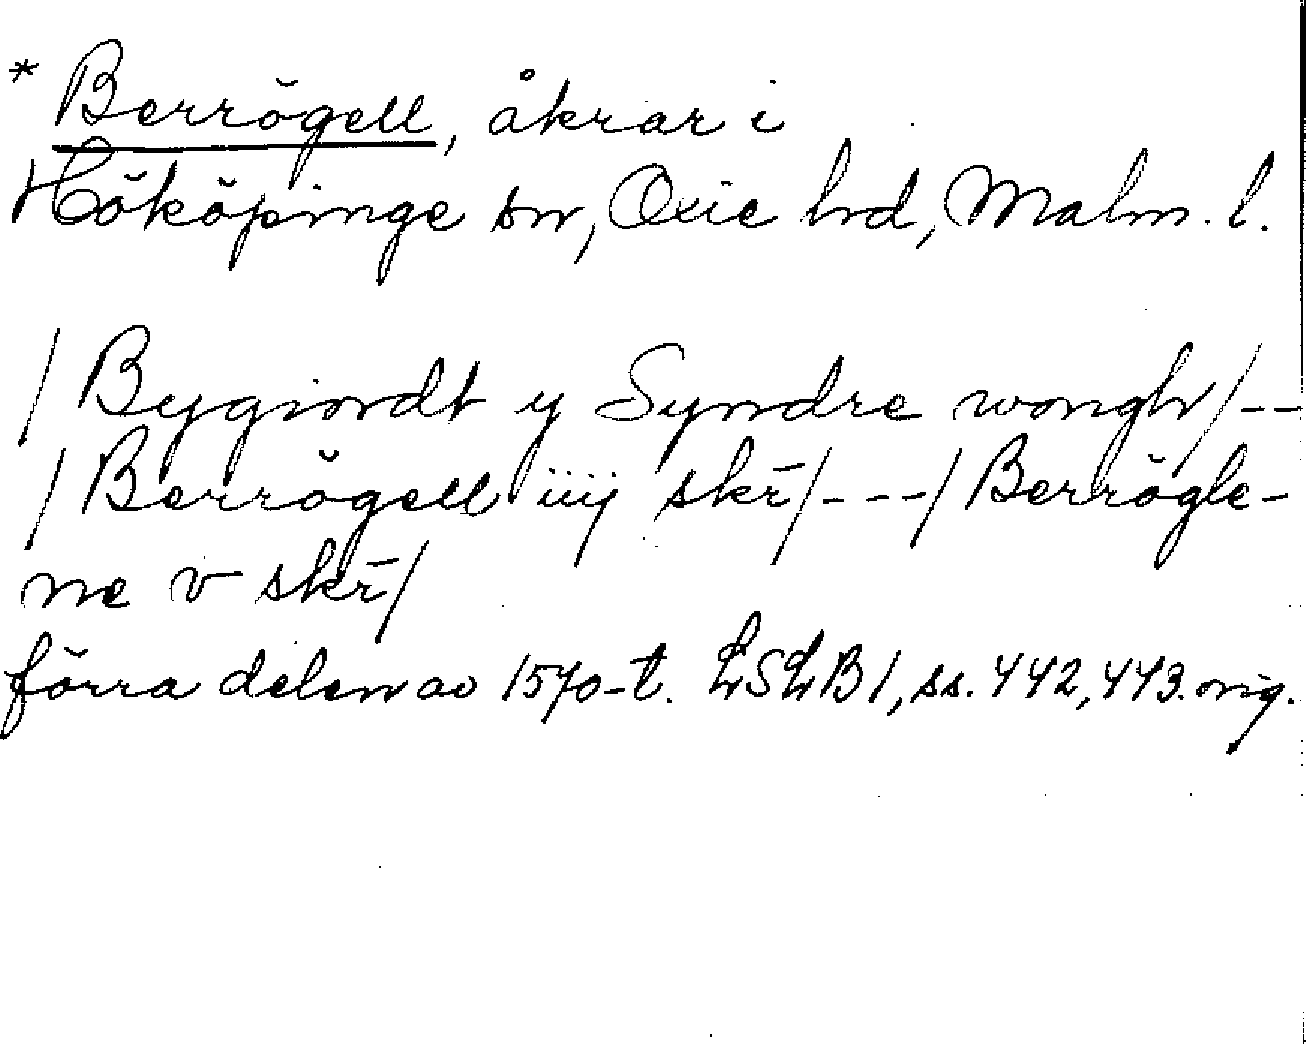 * Berrögell, åkrar i
Hököpinge sn, Oxie hd, Malm. l.
/ Bygiordt y Syndre wongh/--
/ Berrögell iiij skr̄/---/ Berrögle-
ne v skr̄/
förra delen av 1570-t. LSLB 1, ss. 442, 443. orig.